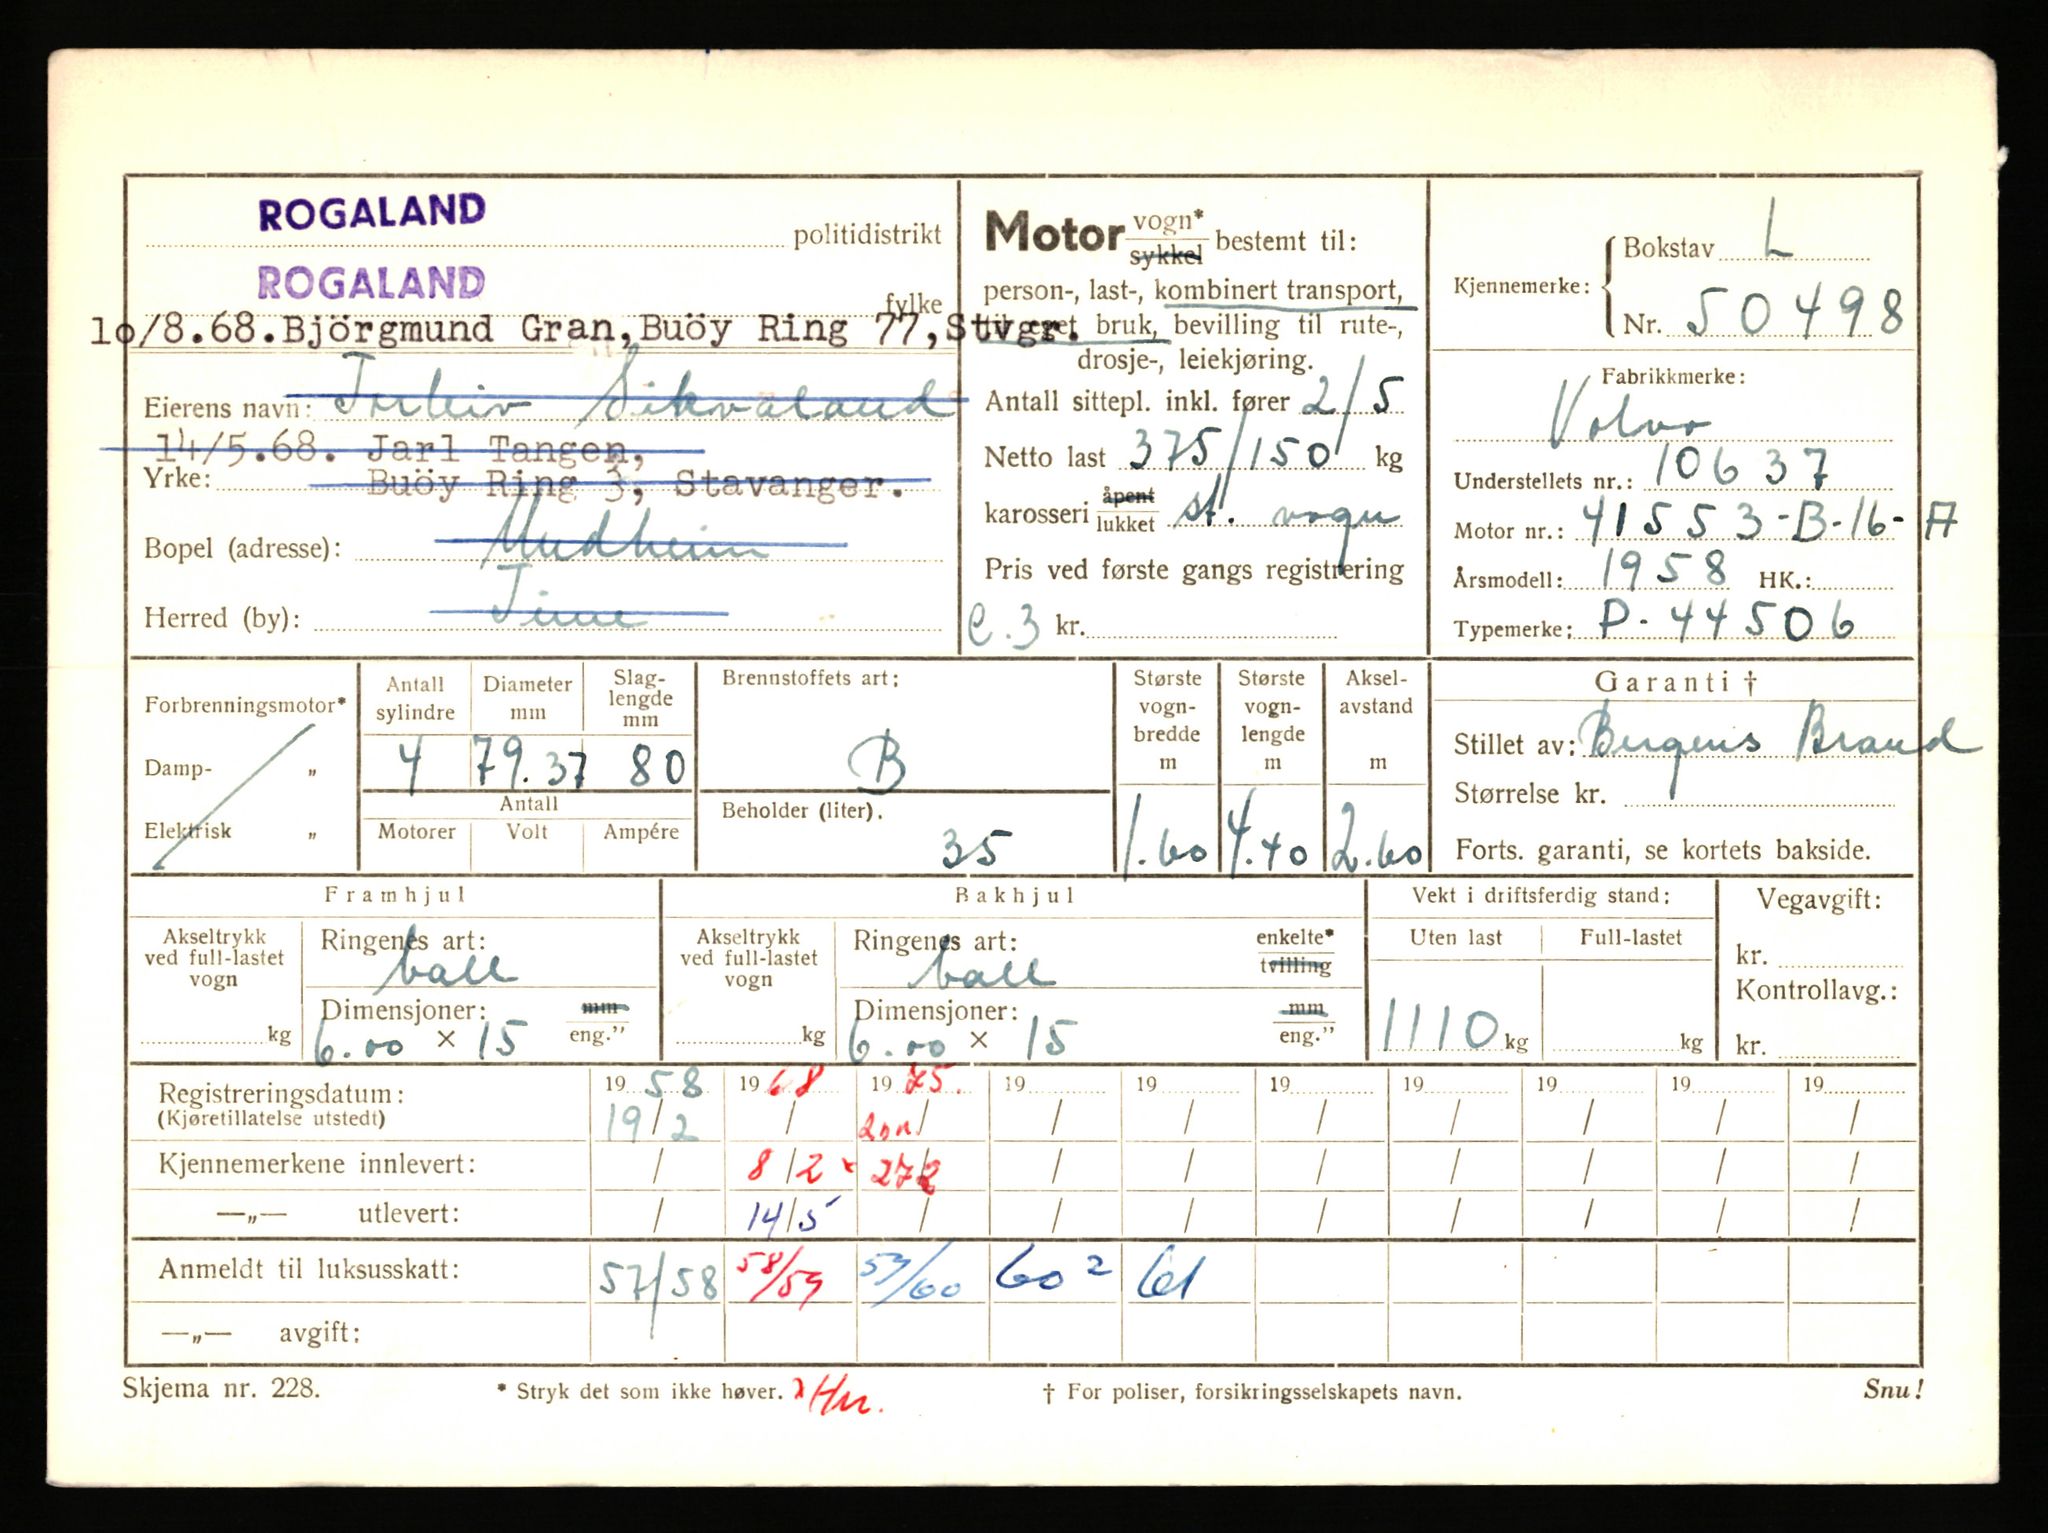 ROGALAND politidistrikt
ROGALAND fylke
10/8.68. Björgmund Gran, Buöy Ring 77, Stvgr.
Eierens navn: Torleiv Sikvaland
14/5.68. Jarl Tangen,
Yrke: Buöy Ring 3, Stavanger.
Bopel (adresse): Undheim
Herred (by): Time
Motor vogn* sykkel bestemt til:
person-, last-, kombinert transport,
til eget bruk, bevilling til rute-,
drosje-, leiekjøring.
Antall sittepl. inkl. fører 2/5
Netto last 375/150 kg
karosseri åpent lukket st. vogn
Pris ved første gangs registrering
e.3 kr.
Kjennemerke: Bokstav L
Nr. 50498
Fabrikkmerke:
Volvo
Understellets nr.: 10637
Motor nr.: 41553-B-16-A
Årsmodell: 1958 HK.:
Typemerke: P-44506
Forbrenningsmotor*
Damp- „
Elektrisk „
Antall sylindre Diameter mm Slaglengde mm
4 79.37 80
Antall
Motorer Volt Ampére
Brennstoffets art:
B
Beholder (liter).
35
Største vognbredde m
1.60
Største vognlengde m
4.40
Akselavstand m
2.60
Garanti †
Stillet av: Bergens Brand
Størrelse kr.
Forts. garanti, se kortets bakside.
Framhjul
Akseltrykk ved full-lastet vogn
kg
Ringenes art:
ball
Dimensjoner: mm
6.00 × 15 eng.”
Bakhjul
Akseltrykk ved full-lastet vogn
kg
Ringenes art: enkelte*
ball tvilling
Dimensjoner: mm
6.00 × 15 eng.”
Vekt i driftsferdig stand:
Uten last Full-lastet
1110 kg kg
Vegavgift:
kr.
Kontrollavg.:
kr.
Registreringsdatum: 19 58 19 68 19 75. 19 19 19 19 19 19 19
(Kjøretillatelse utstedt) 19/2 / / / / / / / / /
Kjennemerkene innlevert: / 8/2 x 27/2 / / / / / / /
—„— utlevert: / 14/5 / / / / / / / /
Anmeldt til luksusskatt: 57/58 58/59 59/60 60 2 61
—„— avgift:
Skjema nr. 228. * Stryk det som ikke høver. x Hn. † For poliser, forsikringsselskapets navn. Snu!